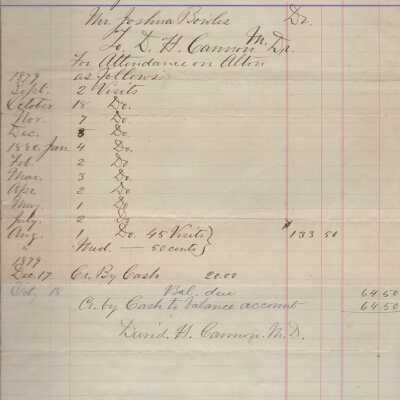 Mr Joshua Bowles Dr.
To D. H. Cannon M. Dr.
For Attendance on Alton
1879 as follows
Sept. 2 Visits
October 18 Do.
Nov. 7 Do.
Dec. 5 Do.
1880 Jan 4 Do.
Feb. 2 Do
Mar. 3 Do
Apr. 2 Do
May 1 Do
July. 2 Do
Aug. 1 Do. 45 Visits } $133 50
" Med. — 50 cents
1879
Dec. 17 Cr. By Cash 20.00
18 Bal. due 64.50
Cr. by Cash to balance account 64.50
David H. Cannon. M.D.